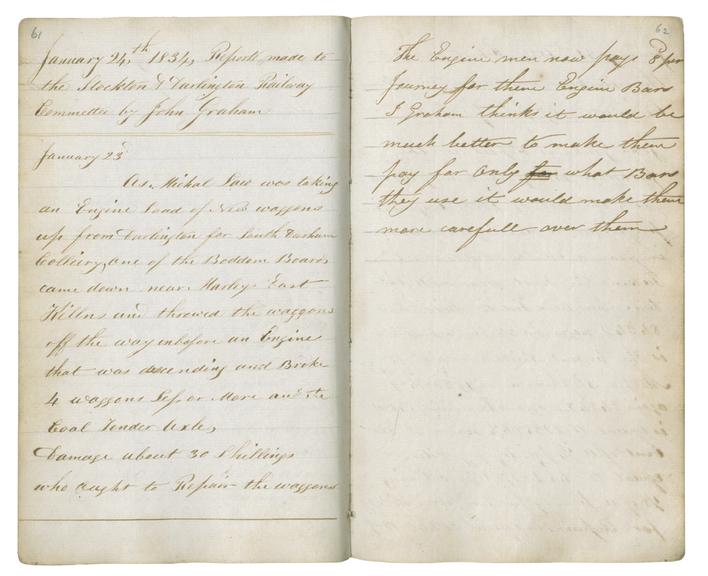 61
January 24th 1834, Reports made to
the Stockton & Darlington Railway
Committee by John Graham
January 23d
As Michal Law was taking
an Engine Load of New waggons
up from Darlington for South Durham
Colliery, one of the Boddom Boards
came down near Harleys East
Killns and throwed the waggons
off the way in before an Engine
that was decending and Broke
4 waggons Less or More and the
Coal Tender Axle,
Damage about 30 Shillings
who aught to Repair the waggons
62
The Engine men now pays per
Journey for there Engine Bars
J Graham thinks it would be
much better to make them
pay for only for what Bars
they use it would make them
more carefull over them